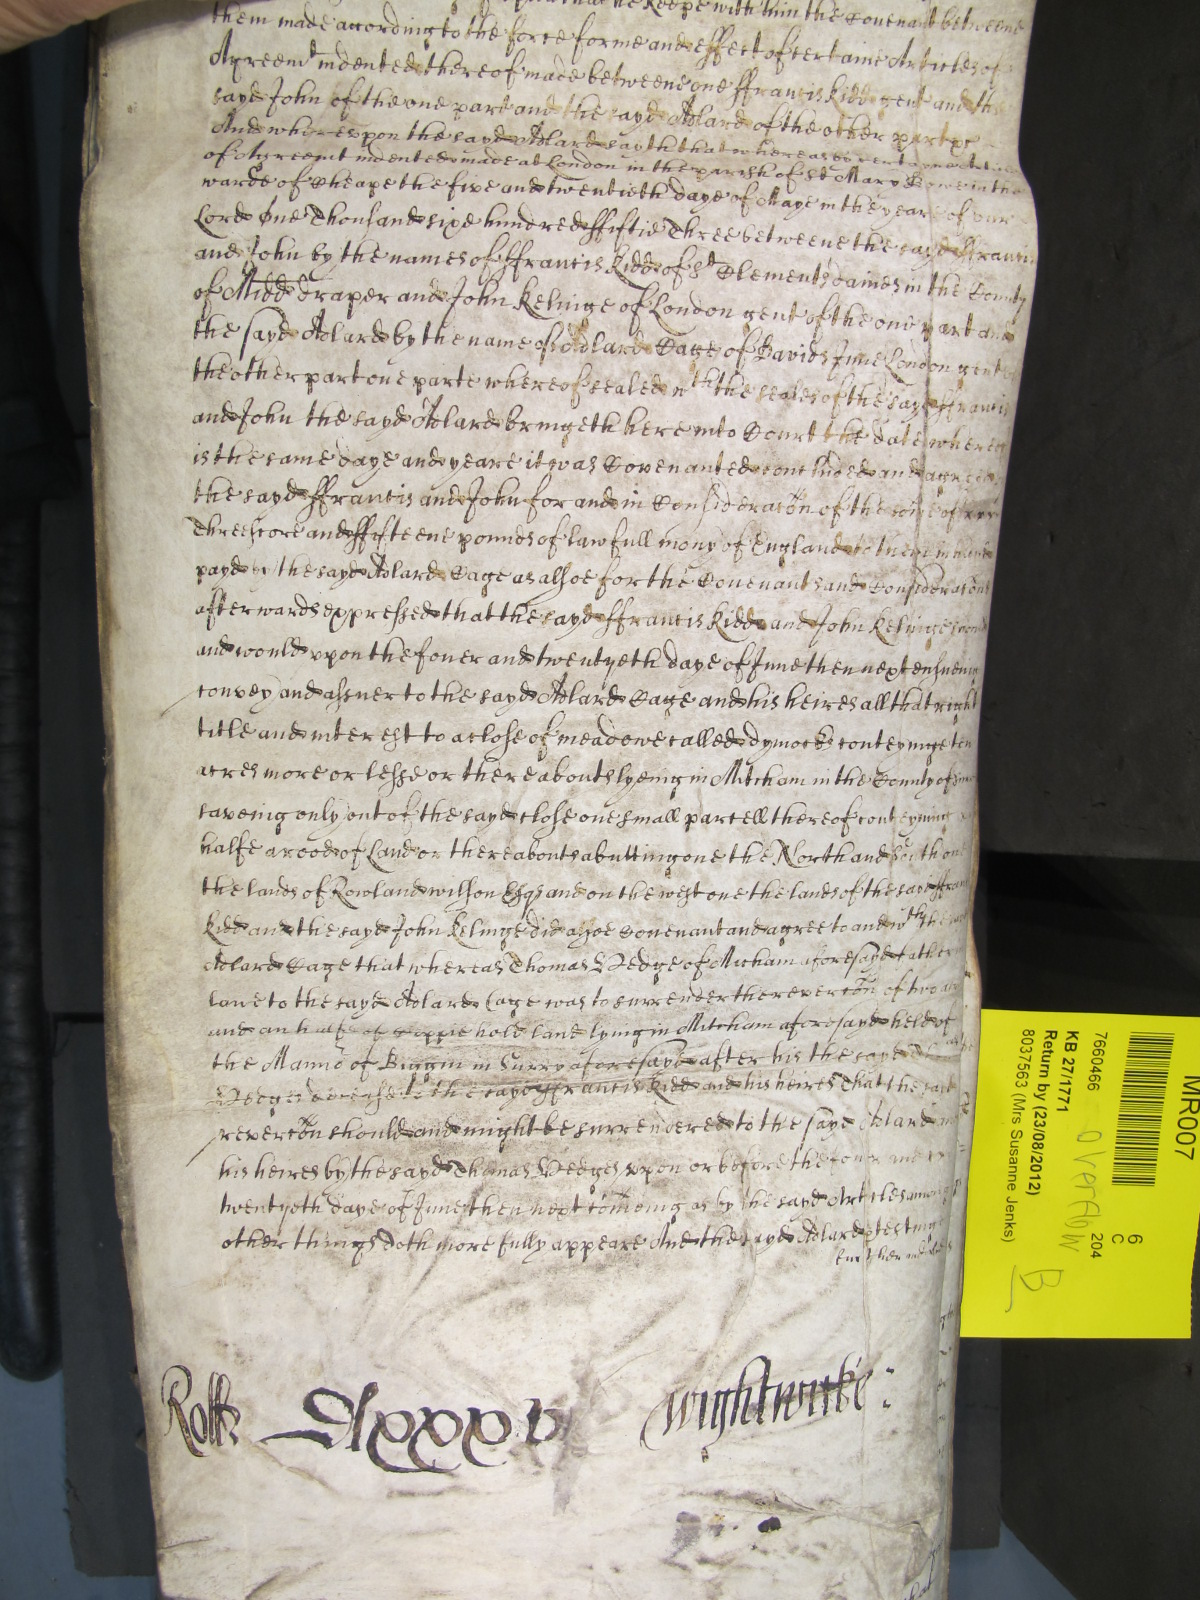 keepe with thin the Covenant betweene
them made according to the force forme and effect of certaine Articles of
Agreemt indented thereof made betweene one ffrancis Kidd gent and the
sayd John of the one part and the sayd Adlard of the other partye
And whereupon the sayd Adlard sayth that whereas by certayne Articles
of Agreemt indented made at London in the parish of St Mary Bowe in the
warde of Cheape the five and twentieth daye of Maye in the yeare of our
Lord One Thousand sixe hundred ffiftie Three betweene the sayd ffrancis
and John by the names of ffrancis Kidd of St Clements daines in the County
of Midd draper and John Kelinge of London gent of the one part and
the sayd Adlard by the name of Adlard Cage of Barnards Inne London gent of
the other part one parte whereof sealed wth the seales of the sayd ffrancis
and John the sayd Adlard bringeth here into Court the date whereof
is the same daye and yeare it was Covenanted concluded and agreed
the sayd ffrancis and John for and in Consideracon of the some of
Threescore and ffifteene pounds of lawfull mony of England to them in hand
payd by the sayd Adlard Cage as alsoe for the Covenants and Consideracons
afterwards expressed that the sayd ffrancis Kidd and John Kelinge should
and would upon the fower and twentyeth daye of June then next ensueing
convey and assuer to the sayd Adlard Cage and his heires all that right
title and interest to a close of meadowe called dymocks conteyninge ten
acres more or lesse or thereabouts lyeing in Mitcham in the County of
saveing only out of the sayd close one small parcell thereof conteyning
halfe a rood of Land or thereabouts abutting one the North and South one
the lands of Rowland wilson Esqr and on the west one the lands of the sayd ffrancis
Kidd and the sayd John Kelinge did alsoe Covenant and agree to and wth the sayd
Adlard Cage that whereas Thomas Hedge of Micham aforesayd father in
lawe to the sayd Adlard Cage was to surrender the revercon of two acres
and an halfe of coppie hold land lying in Mitcham aforesayd held of
the Mannor of Biggin in Surry aforesayd after his the sayd Thomas
Hedges decease to the sayd ffrancis Kidd and his heires That the sayd
revercon should and might be surrendered to the sayd Adlard and
his heires by the sayd Thomas Hedges upon or before the four and
twentyeth daye of June then next comeing as by the sayd Articles among
other things doth more fully appeare And the sayd Adlard protesting
Rolle wightwicke:
MR007
6
C
7660466 204
KB 27/1771
Return by (23/08/2012)
8037563 (Mrs Susanne Jenks)